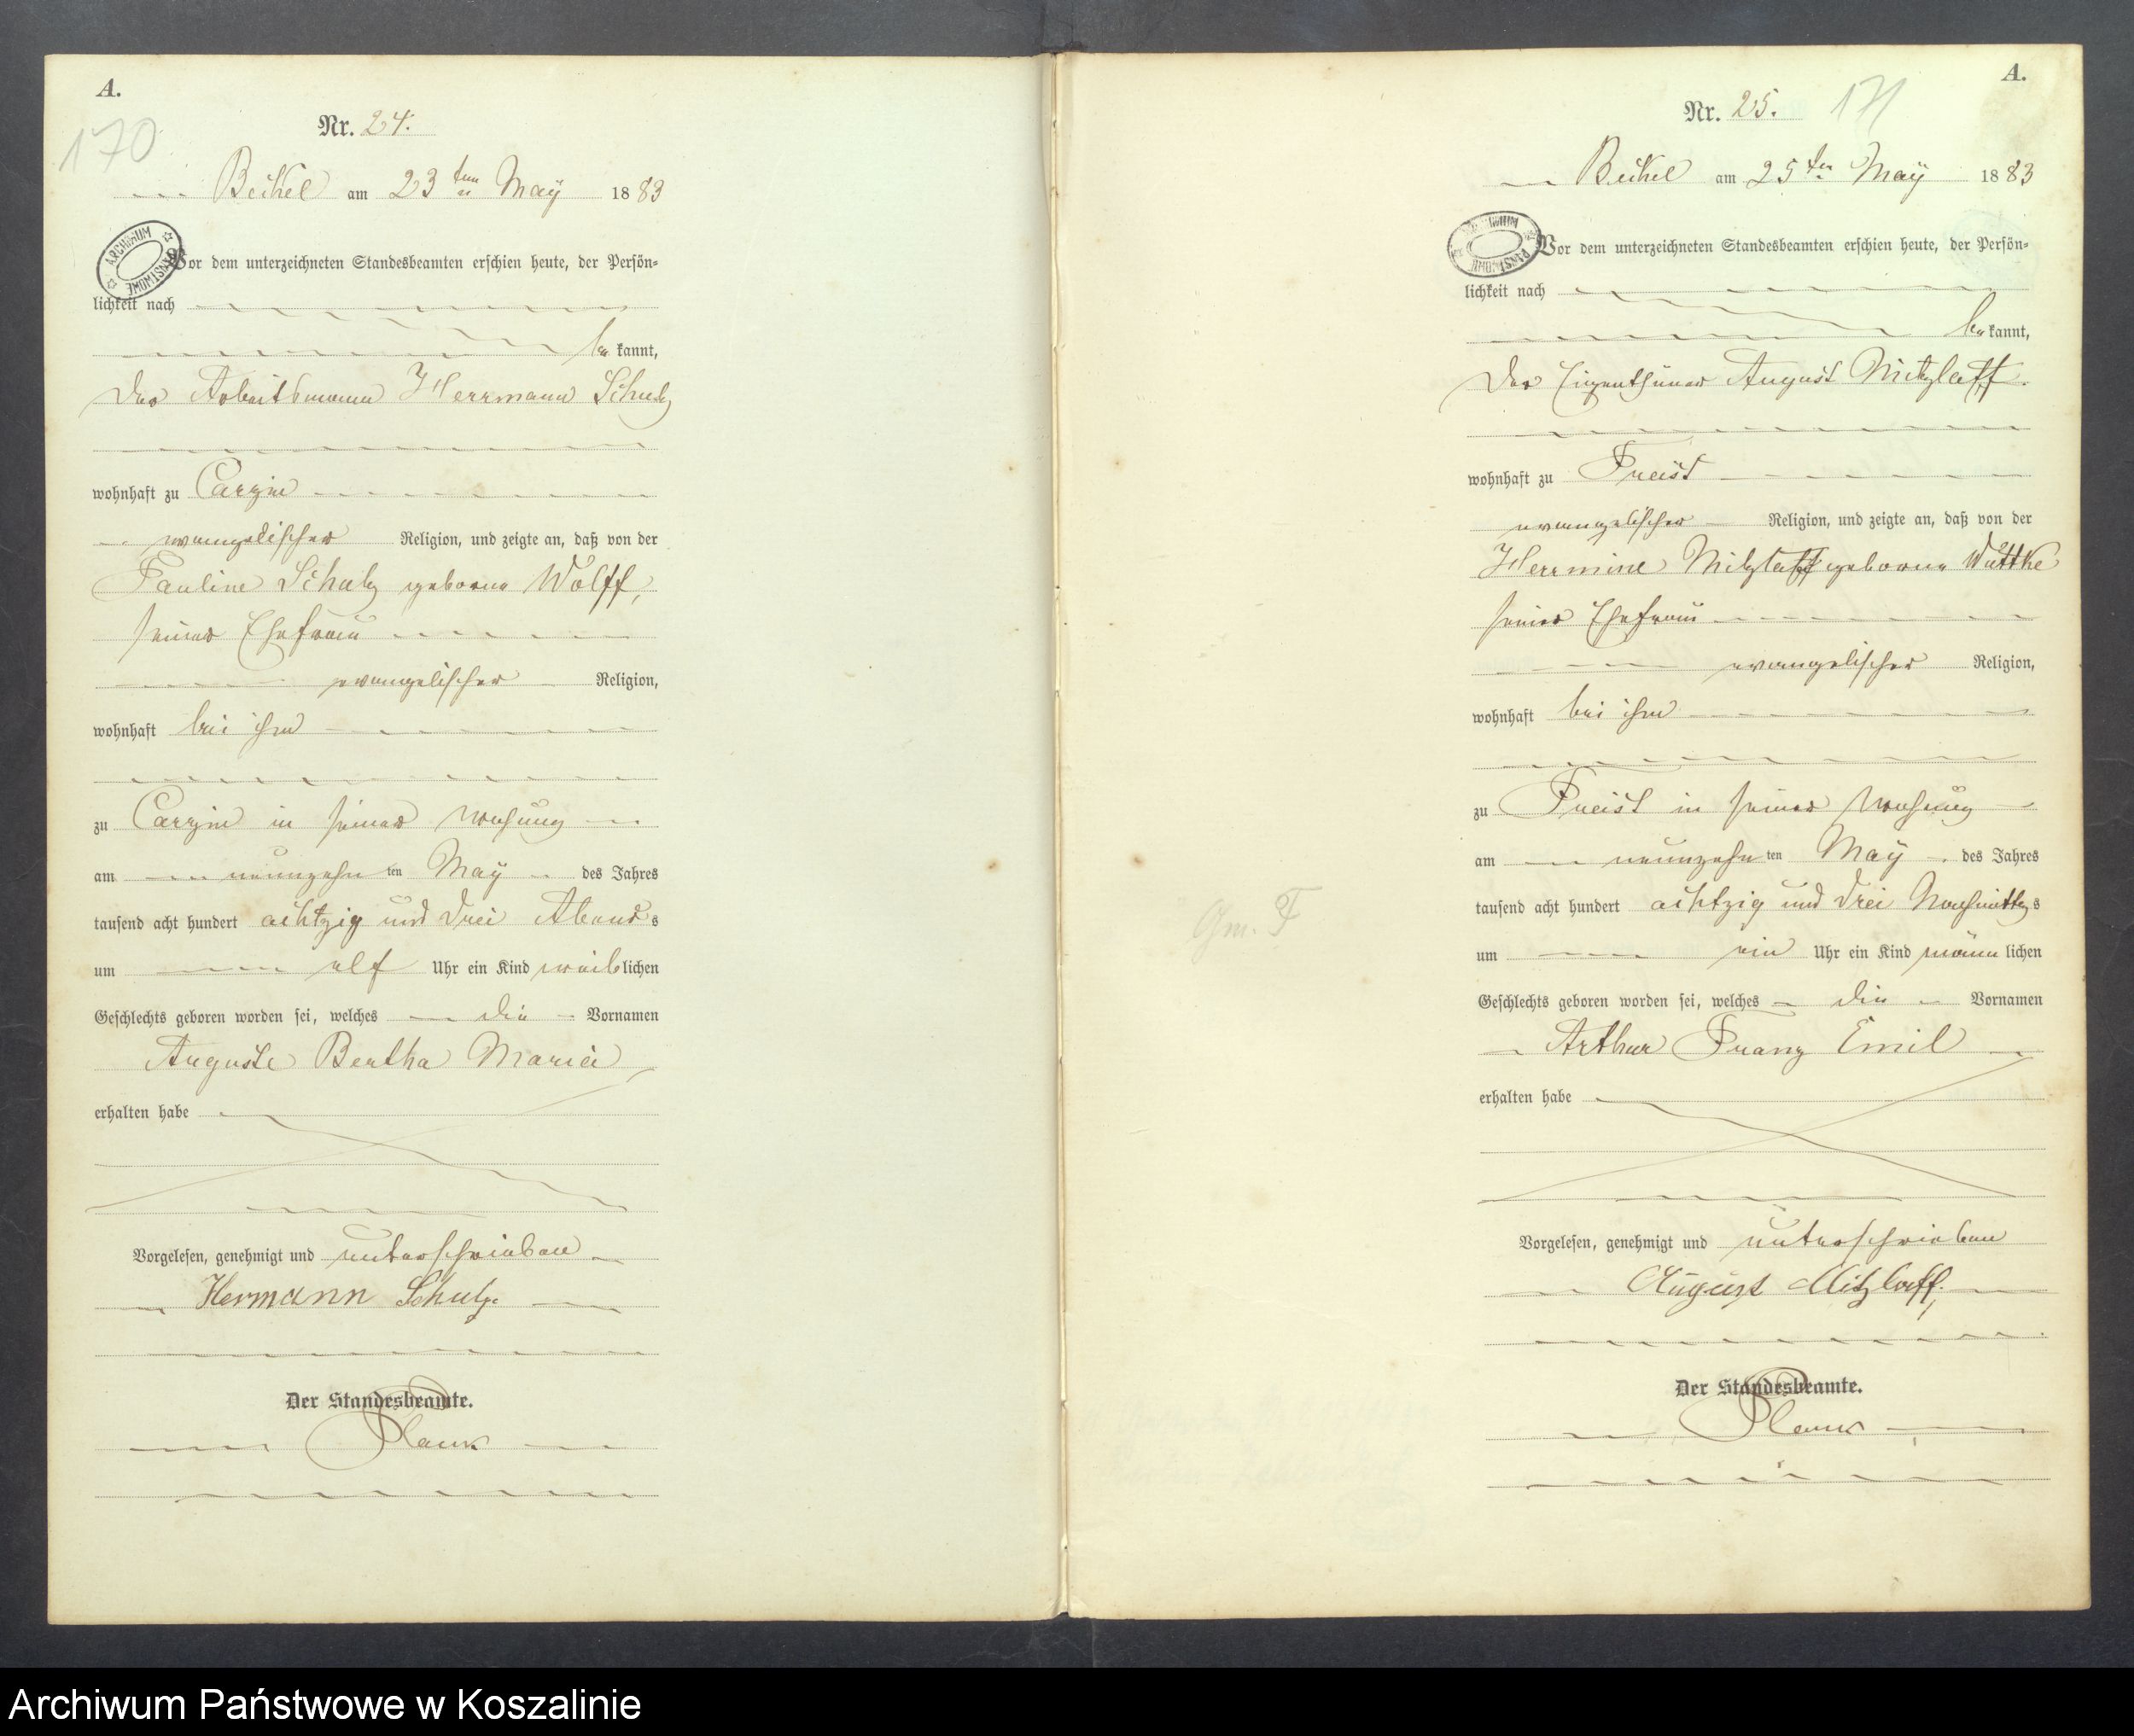 A.
170
Nr. 24.
Beikel am 23ten May 1883
ARCHIWUM PAŃSTWOWE
Vor dem unterzeichneten Standesbeamten erschien heute, der Persön-
lichkeit nach
be kannt,
der Arbeitsmann Herrmann Schulz
wohnhaft zu Carzin
evangelischer Religion, und zeigte an, daß von der
Pauline Schulz geborne Wolff,
seiner Ehefrau
evangelischer Religion,
wohnhaft bei ihm
zu Carzin in seiner Wohnung
am neunzehn ten May des Jahres
tausend acht hundert achtzig und drei Abends
um elf Uhr ein Kind weiblichen
Geschlechts geboren worden sei, welches die Vornamen
Auguste Bertha Maria
erhalten habe
Vorgelesen, genehmigt und unterschrieben
Hermann Schulz.
Der Standesbeamte.
Plank
A.
171
Nr. 25.
Beikel am 25ten May 1883
ARCHIWUM PAŃSTWOWE
Vor dem unterzeichneten Standesbeamten erschien heute, der Persön-
lichkeit nach
be kannt,
der Eigenthümer August Mitzlaff.
wohnhaft zu Freist
evangelischer Religion, und zeigte an, daß von der
Herrmine Mitzlaff geborne Wuttke
seiner Ehefrau
evangelischer Religion,
wohnhaft bei ihm
zu Freist in seiner Wohnung
am neunzehn ten May des Jahres
tausend acht hundert achtzig und drei Nachmittags
um ein Uhr ein Kind männlichen
Geschlechts geboren worden sei, welches die Vornamen
Arthur Franz Emil
erhalten habe
Vorgelesen, genehmigt und unterschrieben
August Mitzlaff.
Der Standesbeamte.
Plank
Gm. F
Archiwum Państwowe w Koszalinie